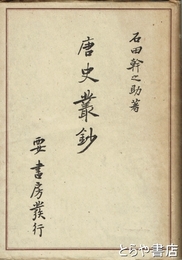 石田幹之助著
唐史叢鈔
要書房發行
とらや書房